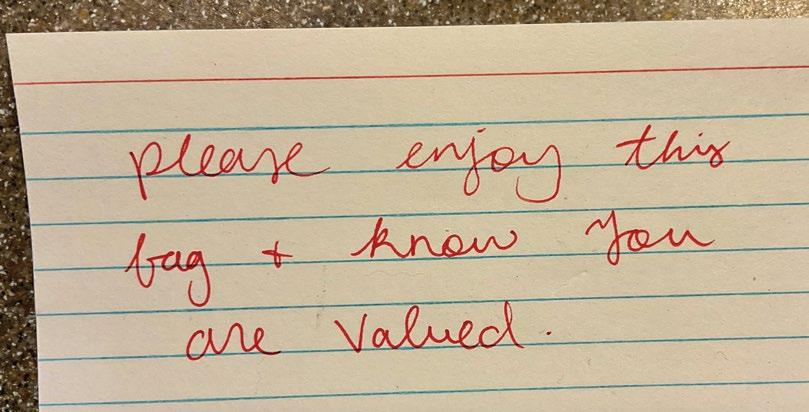 please enjoy this
bag + know you
are valued.